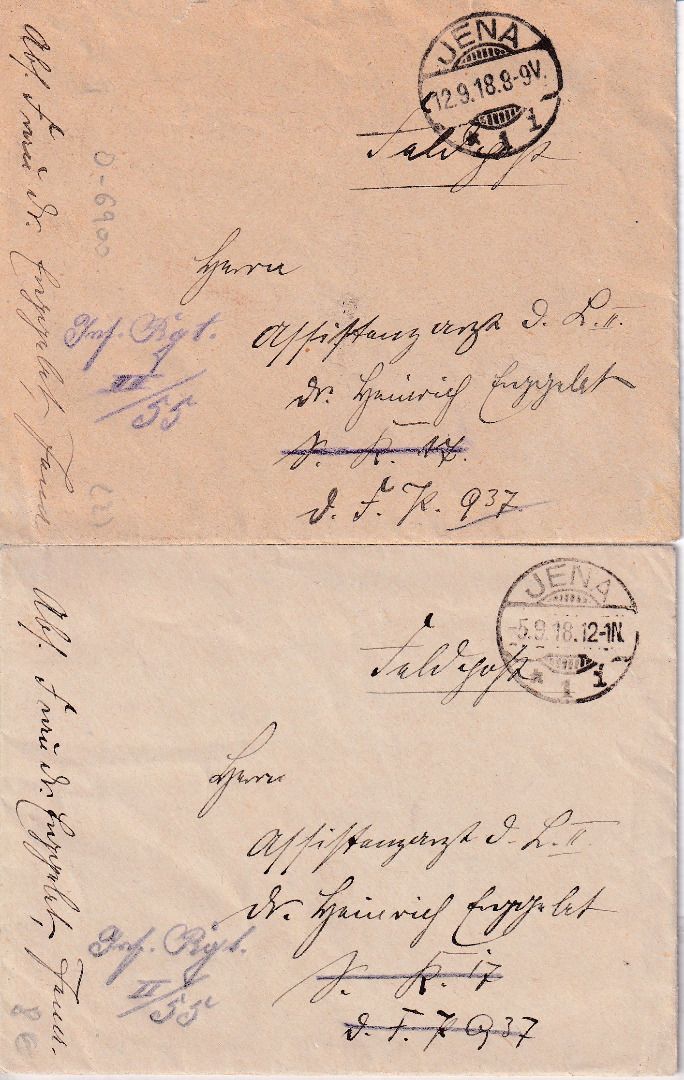 JENA
12.9.18.8-9V.
* 1 i
Feldpost
Herrn
Assistenzarzt d. L. II.
Dr. Heinrich Enggelet
S. K. 17.
d. F. P. 937
Inf. Rgt.
III/55
Abs. Frau Dr. Enggelet, Jena
D-6900
(2)
JENA
-5.9.18.12-1N.
* 1 i
Feldpost
Herrn
Assistenzarzt d. L. II.
Dr. Heinrich Enggelet
S. K. 17
d. F. P. 937
Inf. Rgt.
II/55
Abs. Frau Dr. Enggelet, Jena.
8€